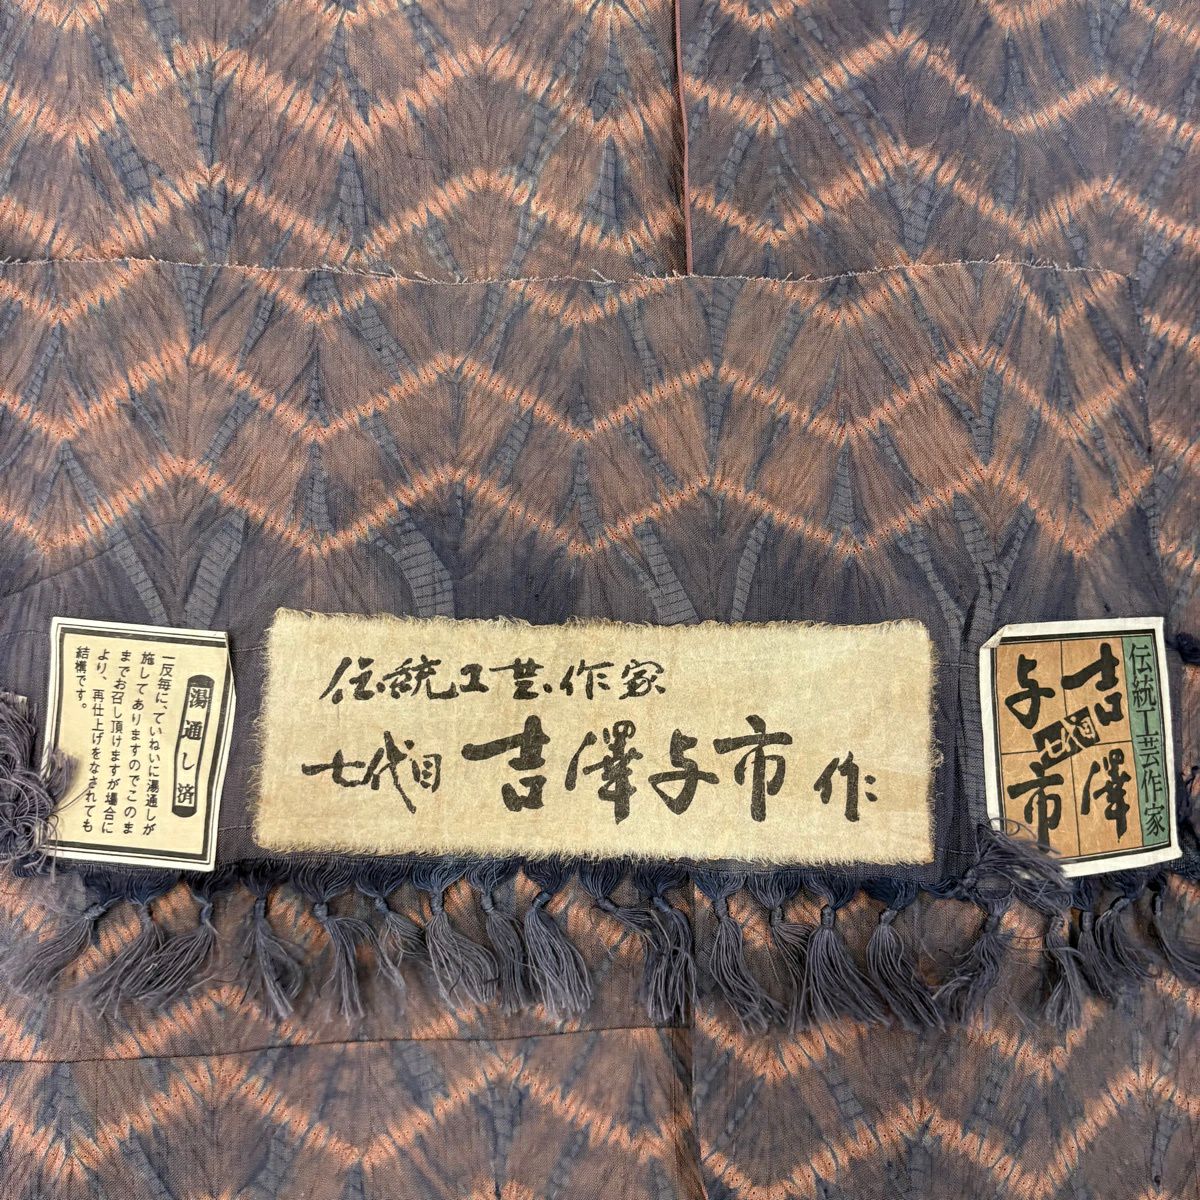 伝統工芸作家
七代目 吉澤与市 作
湯通し済
一反毎に、ていねいに湯通しが
施してありますのでこのま
までお召し頂けますが場合に
より、再仕上げをなされても
結構です。
伝統工芸作家
吉澤
七代目
与市